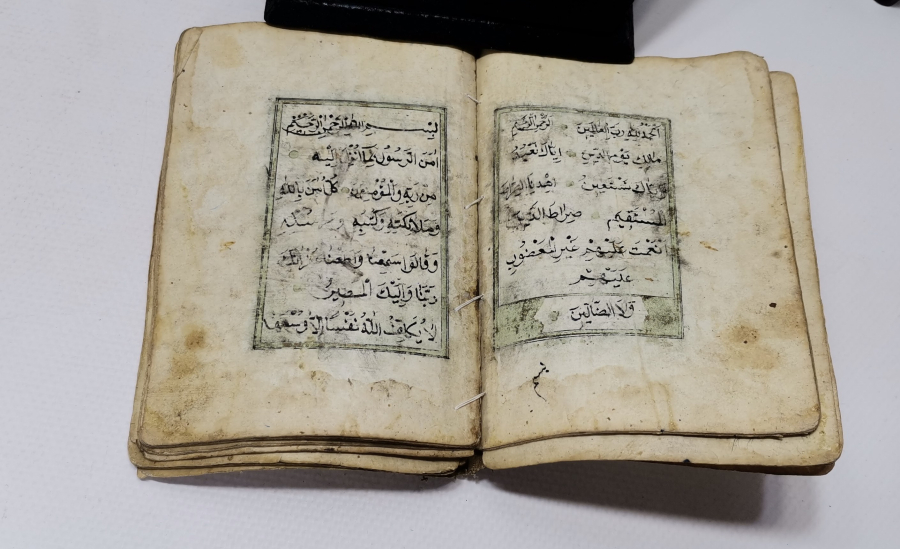 الحمد لله رب العالمين الرحمن الرحيم
مالك يوم الدين اياك نعبد
واياك نستعين اهدنا الصراط
المستقيم صراط الذين
نعمت عليهم غير المغضوب
عليهم
ولا الضالين
بسم
بسم الله الرحمن الرحيم
امن الرسول بما انزل اليه
من ربه والمؤمنون كل امن بالله
وملائكته وكتبه ورسله
وقالوا سمعنا واطعنا غفرانك
ربنا واليك المصير
لا يكلف الله نفسا الا وسعها